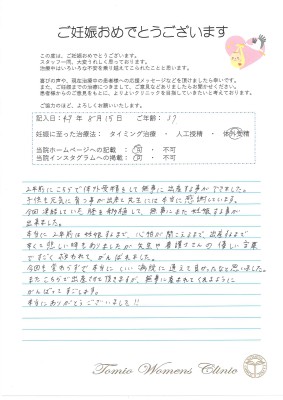 ご妊娠おめでとうございます
この度は、ご妊娠おめでとうございます。
スタッフ一同、大変うれしく思っております。
治療中はいろいろな不安を乗り越えてこられたことと思います。
喜びの声や、現在治療中の患者様への応援メッセージなどを頂けましたら幸いです。
また、ご妊娠までの治療につきまして、ご意見などありましたらお聞かせください。
患者様からのご意見をもとに、よりよいクリニックを目指していきたいと考えております。
ご協力のほど、よろしくお願いいたします。
記入日: 年 8月15日 ご年齢: 37
妊娠に至った治療法: タイミング治療 ・ 人工授精 ・ 体外受精
当院ホームページへの記載 : 可 ・ 不可
当院インスタグラムへの掲載 : 可 ・ 不可
2年前にこちらで体外受精をして無事に出産する事ができました。
子供を元気に育つ事が出来た先生には本当に感謝しています。
今回凍結していた胚を移植して、無事にまた妊娠する事が
出来ました。
本当に2年前は妊娠するまで、心拍が聞こえるまで、出産するまで
辛くて悲しい時もありましたが先生や看護師さんの優しい言葉
ですごく救われて、がんばれました。
今回も変わらず本当にいい病院に通えて良かったなと思いました。
またこちらで出産させて頂きますが、無事に産まれてくれるように
がんばってすごします。
本当にありがとうございました!!
Tomio Womens Clinic